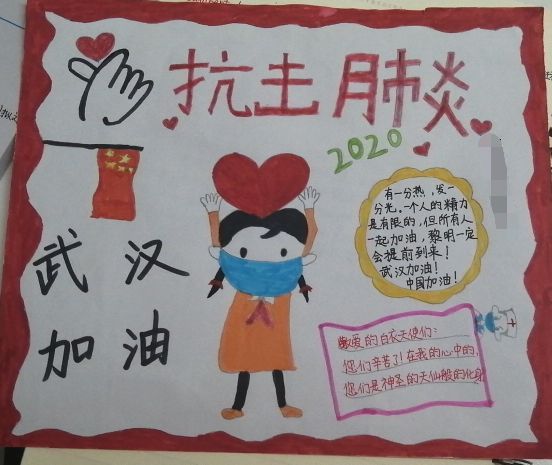 抗击肺炎
2020
有一分热，发一
分光。一个人的精力
是有限的，但所有人
一起加油，黎明一定
会提前到来！
武汉加油！
中国加油！
武汉
加油
敬爱的白衣天使们：
您们辛苦了！在我的心中的，
您们是神圣的天仙般的化身